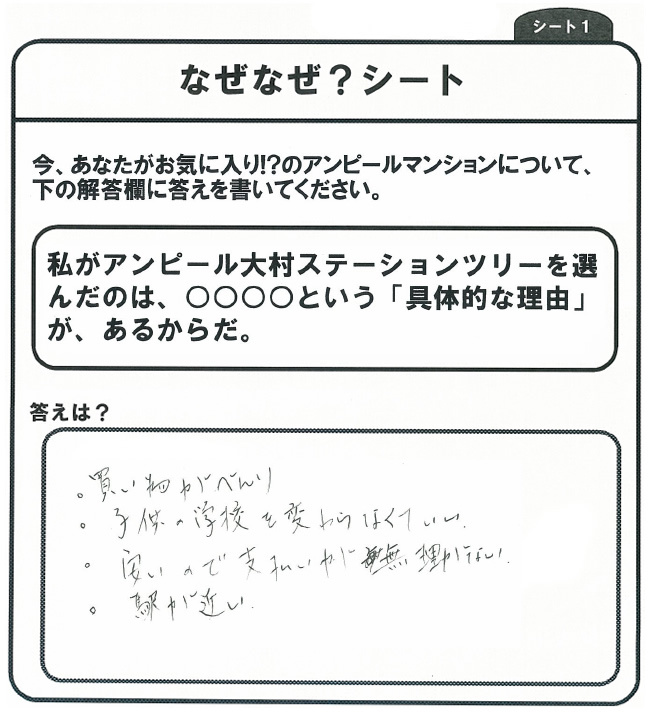 シート1
なぜなぜ？シート
今、あなたがお気に入り!?のアンピールマンションについて、
下の解答欄に答えを書いてください。
私がアンピール大村ステーションツリーを選
んだのは、○○○○という「具体的な理由」
が、あるからだ。
答えは？
。買い物がべんり
。子供の学校を変わらなくていい.
。安いので支払いが無理がない.
。駅が近い.